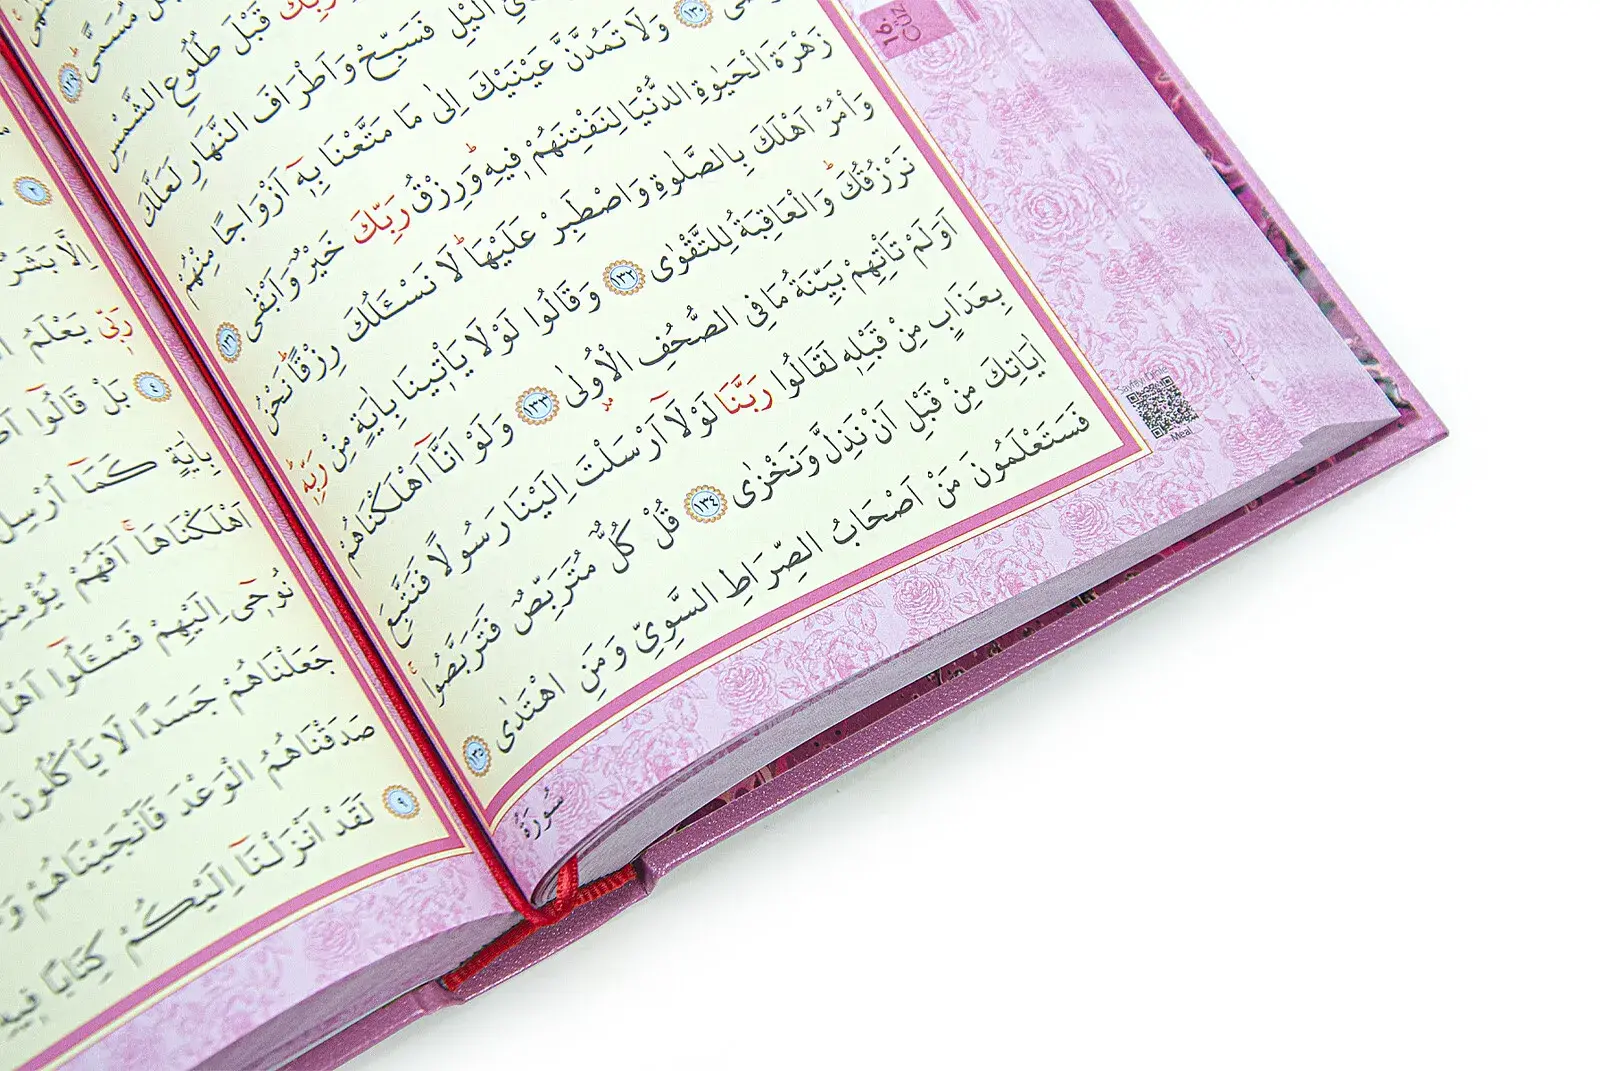 مُسَمًّى ١٢٩
رَبِّكَ قَبْلَ طُلُوعِ الشَّمْسِ
الَّيْلِ فَسَبِّحْ وَاَطْرَافَ النَّهَارِ لَعَلَّكَ
١٣٠ وَلَا تَمُدَّنَّ عَيْنَيْكَ اِلٰى مَا مَتَّعْنَا بِهٖٓ اَزْوَاجًا مِنْهُمْ
زَهْرَةَ الْحَيٰوةِ الدُّنْيَا لِنَفْتِنَهُمْ فٖيهِ وَرِزْقُ رَبِّكَ خَيْرٌ وَاَبْقٰى ١٣١
وَأْمُرْ اَهْلَكَ بِالصَّلٰوةِ وَاصْطَبِرْ عَلَيْهَا لَا نَسْـَٔلُكَ رِزْقًا نَحْنُ
نَرْزُقُكَ وَالْعَاقِبَةُ لِلتَّقْوٰى ١٣٢ وَقَالُوا لَوْلَا يَأْتٖينَا بِاٰيَةٍ مِنْ رَبِّهٖ
اَوَلَمْ تَأْتِهِمْ بَيِّنَةُ مَا فِى الصُّحُفِ الْاُولٰى ١٣٣ وَلَوْ اَنَّٓا اَهْلَكْنَاهُمْ
بِعَذَابٍ مِنْ قَبْلِهٖ لَقَالُوا رَبَّنَا لَوْلَٓا اَرْسَلْتَ اِلَيْنَا رَسُولًا فَنَتَّبِعَ
اٰيَاتِكَ مِنْ قَبْلِ اَنْ نَذِلَّ وَنَخْزٰى ١٣٤ قُلْ كُلٌّ مُتَرَبِّصٌ فَتَرَبَّصُوا
فَسَتَعْلَمُونَ مَنْ اَصْحَابُ الصِّرَاطِ السَّوِىِّ وَمَنِ اهْتَدٰى ١٣٥
سُورَةُ
16.
Cüz
Meal
٢
اِلَّا بَشَرٌ
رَبّٖى يَعْلَمُ
٤ بَلْ قَالُٓوا
بِاٰيَةٍ كَمَٓا اُرْسِلَ
اَهْلَكْنَاهَا اَفَهُمْ
نُوحٖٓى اِلَيْهِمْ فَسْـَٔلُٓوا اَهْلَ
جَعَلْنَاهُمْ جَسَدًا لَا يَأْكُلُونَ
صَدَقْنَاهُمُ الْوَعْدَ فَاَنْجَيْنَاهُمْ
٩ لَقَدْ اَنْزَلْنَٓا اِلَيْكُمْ كِتَابًا فٖيهِ